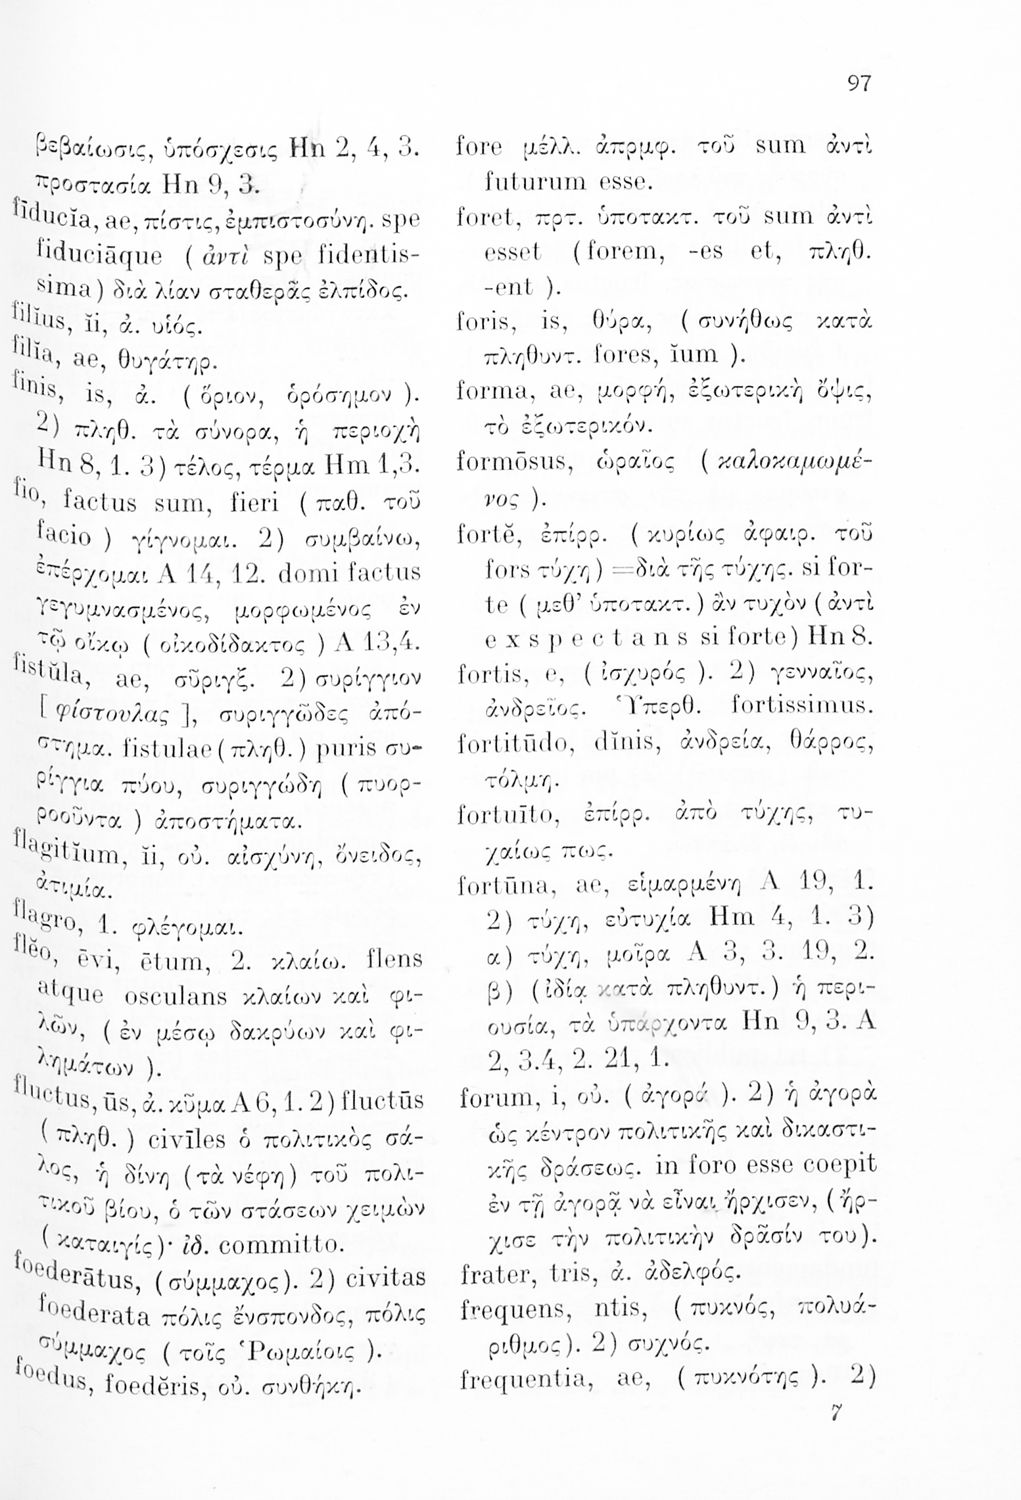 97
βεβαίωσις, ὑπόσχεσις Hn 2, 4, 3.
προστασία Hn 9, 3.
fīducĭa, ae, πίστις, ἐμπιστοσύνη. spe
fiduciāque ( ἀντὶ spe fidentis-
sima) διὰ λίαν σταθερᾶς ἐλπίδος.
filĭus, ĭi, ἀ. υἱός.
filĭa, ae, θυγάτηρ.
finis, is, ἀ. ( ὅριον, ὁρόσημον ).
2) πληθ. τὰ σύνορα, ἡ περιοχὴ
Hn 8, 1. 3) τέλος, τέρμα Hm 1,3.
fio, factus sum, fieri ( παθ. τοῦ
facio ) γίγνομαι. 2) συμβαίνω,
ἐπέρχομαι A 14, 12. domi factus
γεγυμνασμένος, μορφωμένος ἐν
τῷ οἴκῳ ( οἰκοδίδακτος ) A 13,4.
fistŭla, ae, σῦριγξ. 2) συρίγγιον
[ φίστουλας ], συριγγῶδες ἀπό-
στημα. fistulae ( πληθ. ) puris συ-
ρίγγια πύου, συριγγώδη ( πυορ-
ροοῦντα ) ἀποστήματα.
flagitĭum, ĭi, οὐ. αἰσχύνη, ὄνειδος,
ἀτιμία.
flagro, 1. φλέγομαι.
flĕo, ēvi, ētum, 2. κλαίω. flens
atque osculans κλαίων καὶ φι-
λῶν, ( ἐν μέσῳ δακρύων καὶ φι-
λημάτων ).
fluctus, ūs, ἀ. κῦμα A 6, 1. 2) fluctūs
( πληθ. ) civīles ὁ πολιτικὸς σά-
λος, ἡ δίνη (τὰ νέφη) τοῦ πολι-
τικοῦ βίου, ὁ τῶν στάσεων χειμὼν
( καταιγίς )· ἰδ. committo.
foederātus, (σύμμαχος). 2) civitas
foederata πόλις ἔνσπονδος, πόλις
σύμμαχος ( τοῖς Ῥωμαίοις ).
foedus, foedĕris, οὐ. συνθήκη.
fore μέλλ. ἀπρμφ. τοῦ sum ἀντὶ
futurum esse.
foret, πρτ. ὑποτακτ. τοῦ sum ἀντὶ
esset (forem, -es et, πληθ.
-ent ).
foris, is, θύρα, ( συνήθως κατὰ
πληθυντ. fores, ĭum ).
forma, ae, μορφή, ἐξωτερικὴ ὄψις,
τὸ ἐξωτερικόν.
formōsus, ὡραῖος ( καλοκαμωμέ-
νος ).
fortĕ, ἐπίρρ. ( κυρίως ἀφαιρ. τοῦ
fors τύχη ) =διὰ τῆς τύχης. si for-
te ( μεθ’ ὑποτακτ. ) ἂν τυχὸν (ἀντὶ
exspectans si forte) Hn 8.
fortis, e, ( ἰσχυρός ). 2) γενναῖος,
ἀνδρεῖος. Ὑπερθ. fortissimus.
fortitūdo, dĭnis, ἀνδρεία, θάρρος,
τόλμη.
fortuīto, ἐπίρρ. ἀπὸ τύχης, τυ-
χαίως πως.
fortūna, ae, εἱμαρμένη A 19, 1.
2) τύχη, εὐτυχία Hm 4, 1. 3)
α) τύχη, μοῖρα A 3, 3. 19, 2.
β) (ἰδίᾳ κατὰ πληθυντ.) ἡ περι-
ουσία, τὰ ὑπάρχοντα Hn 9, 3. A
2, 3.4, 2. 21, 1.
forum, i, οὐ. ( ἀγορά ). 2) ἡ ἀγορὰ
ὡς κέντρον πολιτικῆς καὶ δικαστι-
κῆς δράσεως. in foro esse coepit
ἐν τῇ ἀγορᾷ νὰ εἶναι ἤρχισεν, (ἤρ-
χισε τὴν πολιτικὴν δρᾶσίν του).
frater, tris, ἀ. ἀδελφός.
frequens, ntis, ( πυκνός, πολυά-
ριθμος). 2) συχνός.
frequentia, ae, ( πυκνότης ). 2)
7